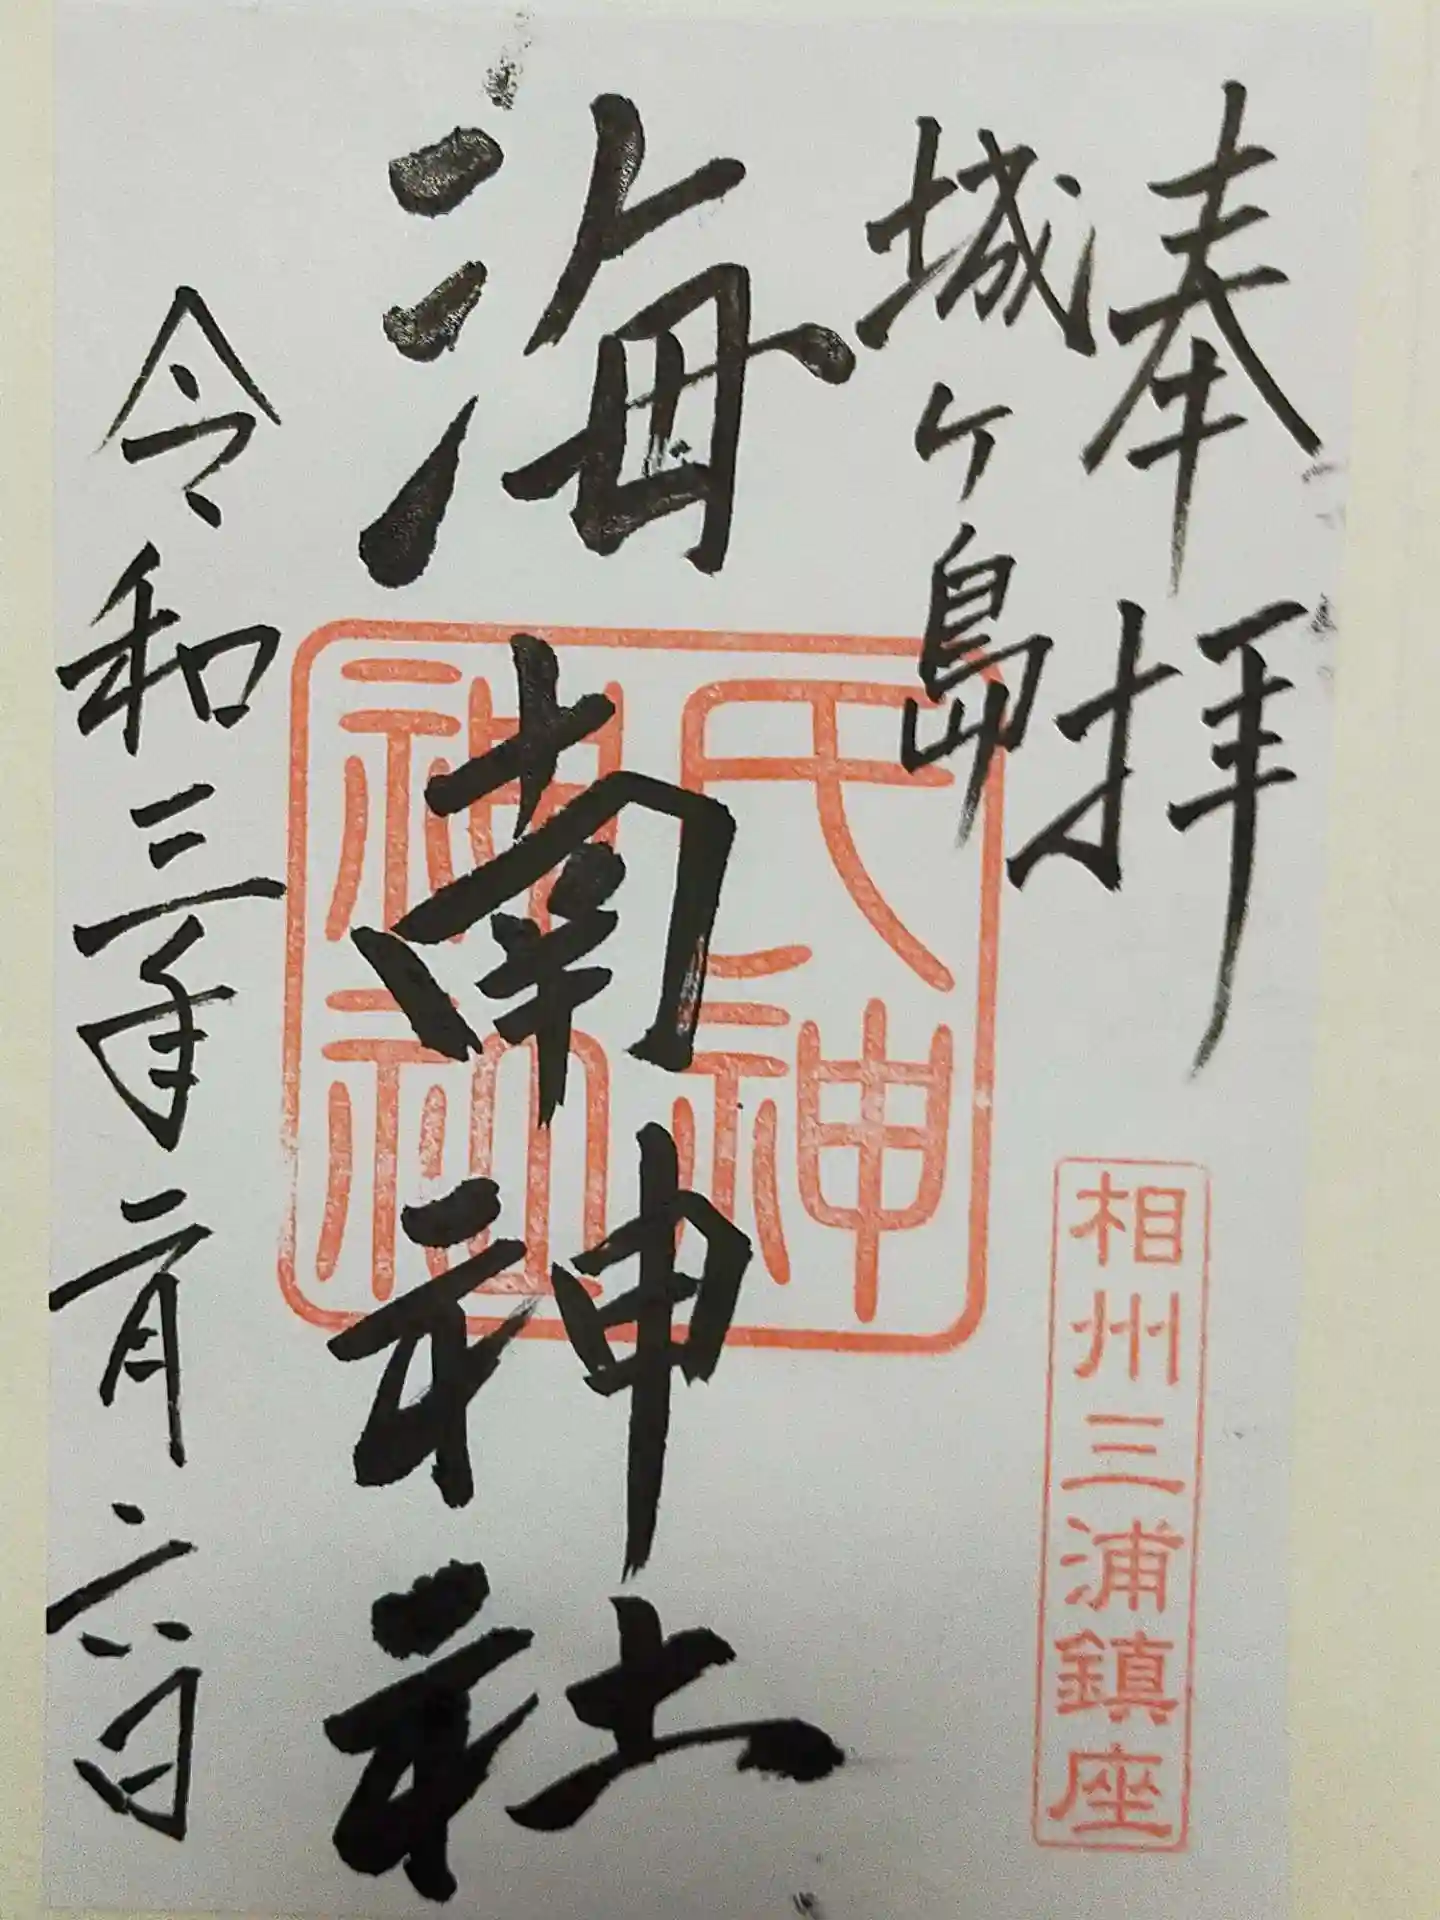 奉拝
城ヶ島
相州三浦鎮座
海南神社
氏神
神社
令和三年二月六日